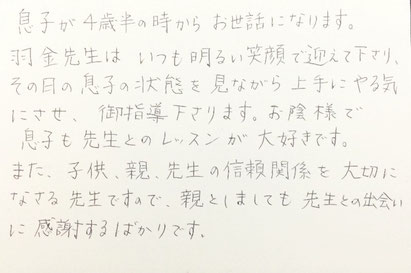 息子が4歳半の時からお世話になります。
羽金先生はいつも明るい笑顔で迎えて下さり、
その日の息子の状態を見ながら上手にやる気
にさせ、御指導下さります。お陰様で
息子も先生とのレッスンが大好きです。
また、子供、親、先生の信頼関係を大切に
なさる先生ですので、親としましても先生との出会い
に感謝するばかりです。